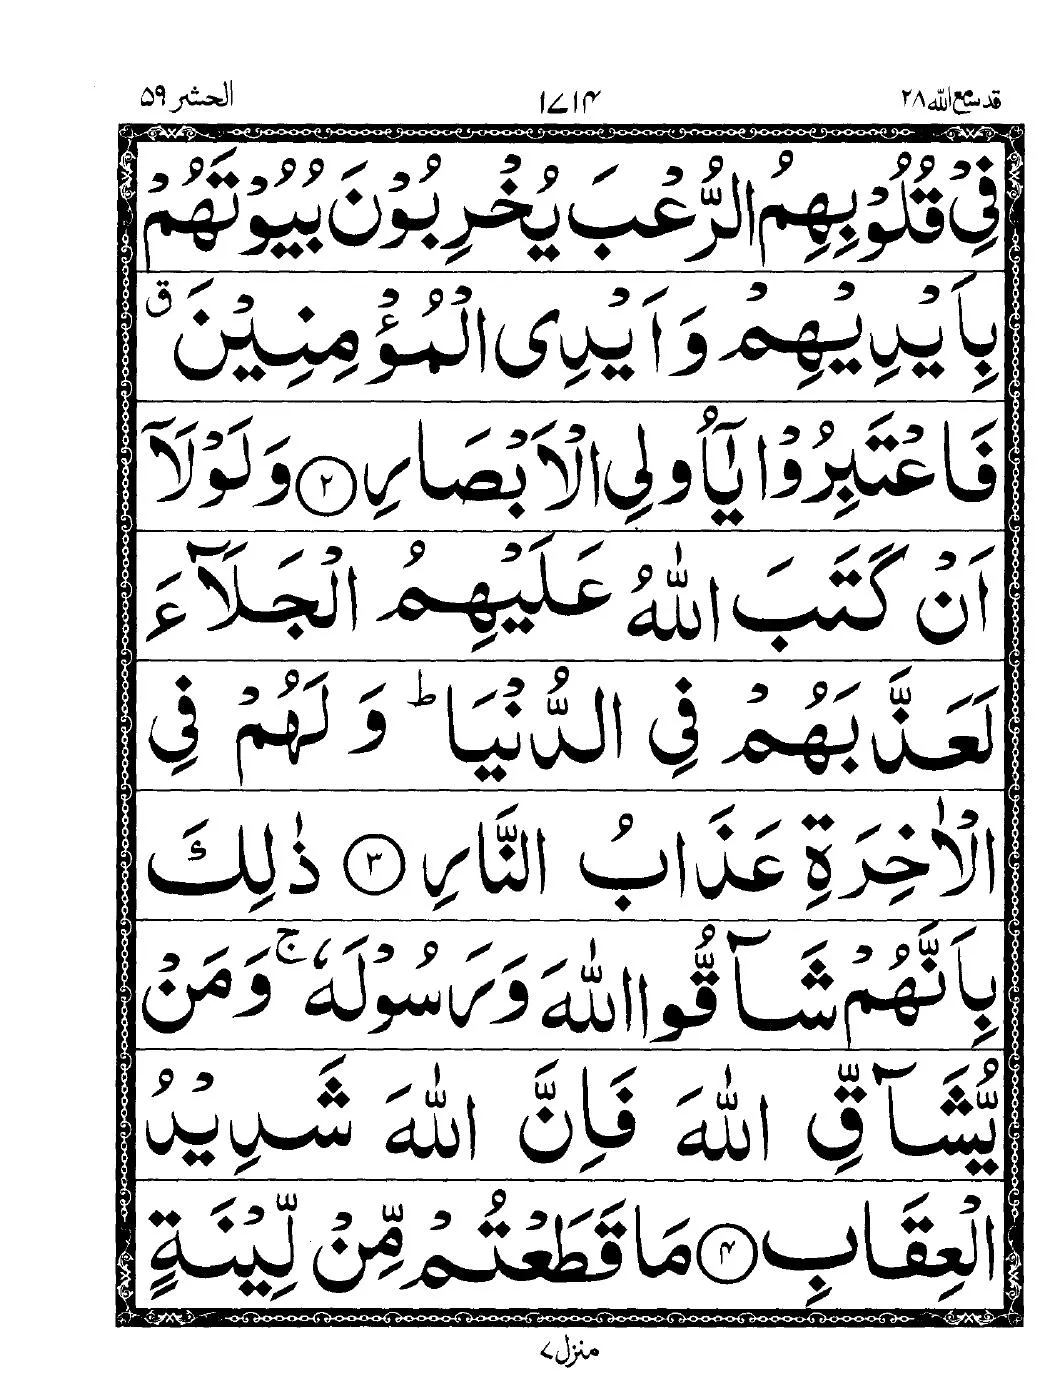 قد سمع الله ۲۸ ۱۷۱۴ الحشر ۵۹
فِیْ قُلُوْبِهِمُ الرُّعْبَ یُخْرِبُوْنَ بُیُوْتَهُمْ
بِاَیْدِیْهِمْ وَاَیْدِی الْمُؤْمِنِیْنَ ۗ
فَاعْتَبِرُوْا یٰۤاُولِی الْاَبْصَارِ ﴿۲﴾ وَلَوْلَاۤ
اَنْ كَتَبَ اللّٰهُ عَلَیْهِمُ الْجَلَآءَ
لَعَذَّبَهُمْ فِی الدُّنْیَا ؕ وَلَهُمْ فِی
الْاٰخِرَةِ عَذَابُ النَّارِ ﴿۳﴾ ذٰلِكَ
بِاَنَّهُمْ شَآقُّوا اللّٰهَ وَرَسُوْلَهٗ ۚ وَمَنْ
یُّشَآقِّ اللّٰهَ فَاِنَّ اللّٰهَ شَدِیْدُ
الْعِقَابِ ﴿۴﴾ مَا قَطَعْتُمْ مِّنْ لِّیْنَةٍ
منزل ۷